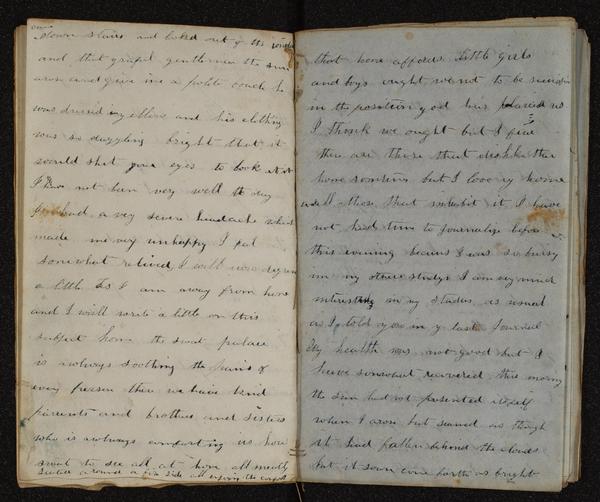 down stairs and looked out of the window
and that graful gentleman the sun
arose and give me a polite
was dressid in yellow and his clothing
was so dazzling bright that it
would shut your eyes to look at it
I have not ben very well to day
had a very severe headache which
made me very unhappy I feel
somewhat relived, I will now
a little As I am away from home
and I will write a little on this
subject home the sweet palace
is always soothing the pains of
evry person there we have kind
parients and brothers and Sisters
who is always comforting us how
sweet to see all at home all
seated around a fire side all injoying the
that home affords little girls
and boys ought we not to be
in the position god has placed us
I think we ought but I
there are those that dislike their
home but I love my home
well those that inhabit it I have
not had time to journalize before
this evening because I was so busy
in my other studys I am very much
interesting in my studies as usual
as I told you in my last Journal
My health was not good but I
have somewhat recovered this morning
the sun had not presented itself
when I arose but seemed as though
it had fallen behind the clouds
but it soon come forth as bright